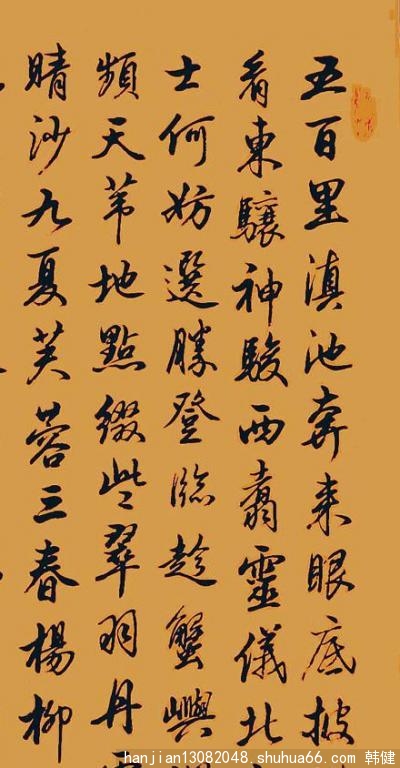 五百里滇池奔来眼底披
看東驤神駿西翥靈儀北
士何妨選勝登臨趁蟹嶼
頻天葦地點綴些翠羽丹
晴沙九夏芙蓉三春楊柳
hanjian13082048.shuhua66.com 韩健